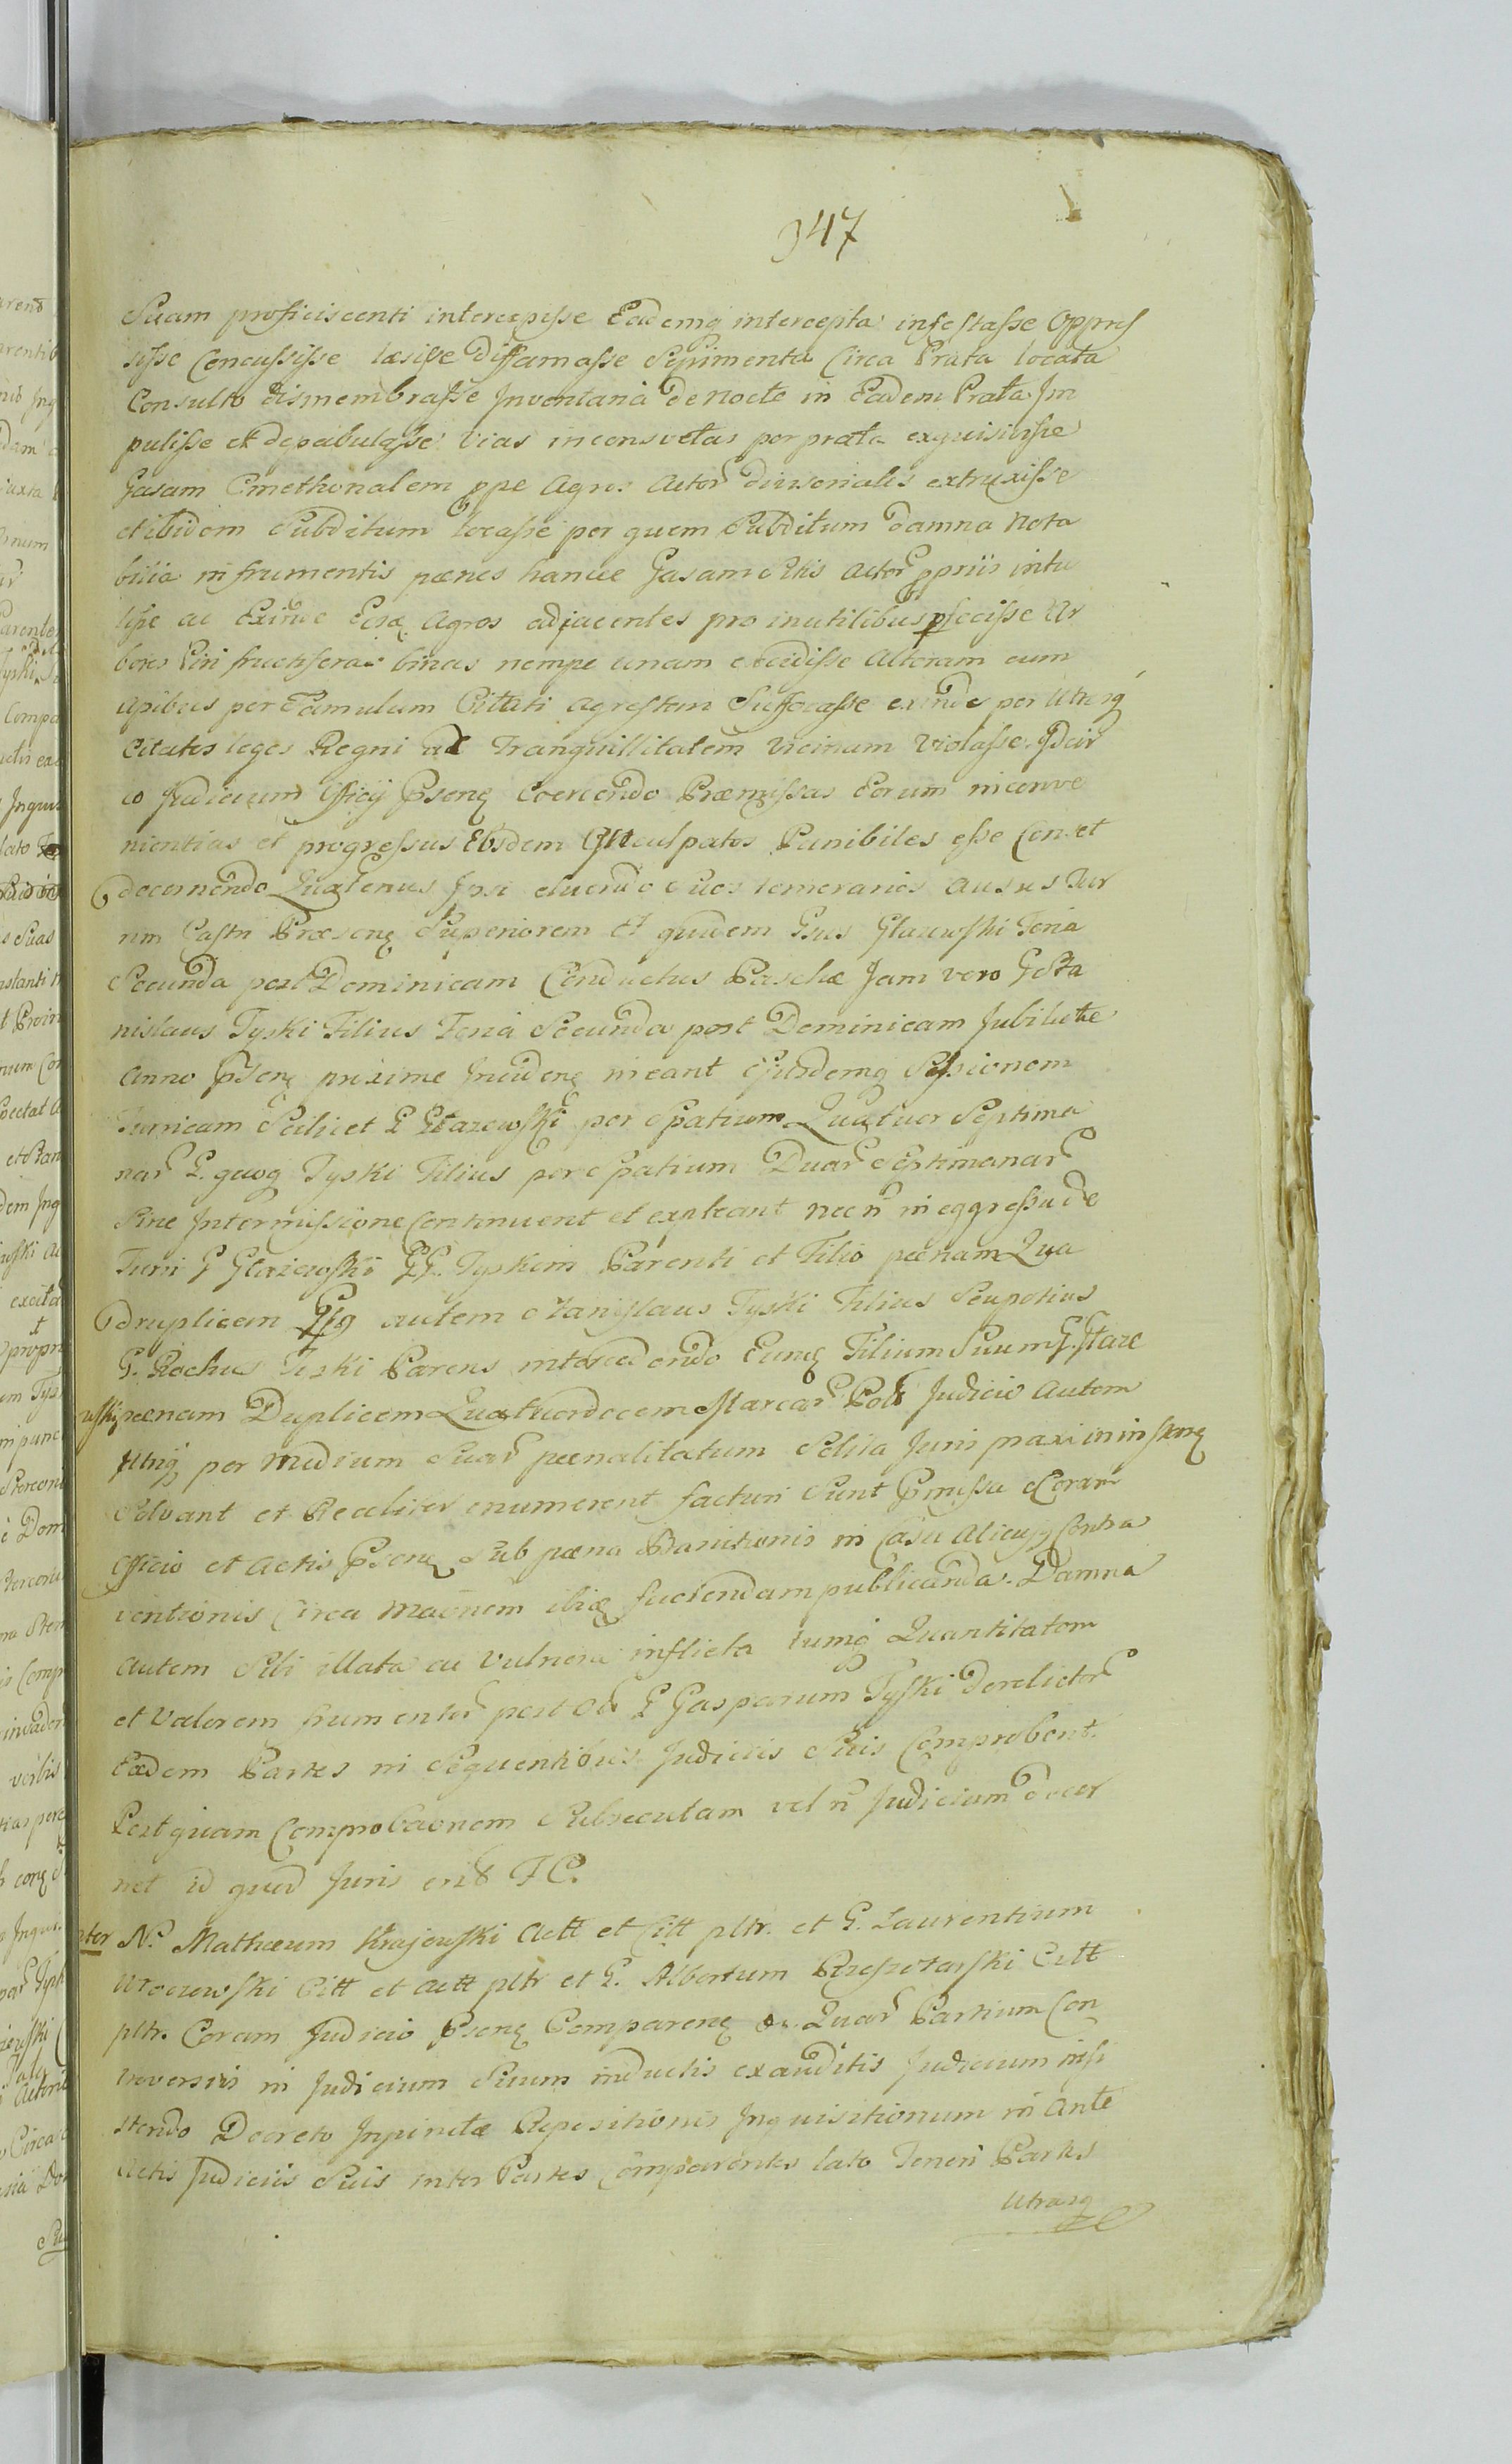 947
Suam proficiscenti intercepisse Eademq intercepta infestasse oppres
sisse Concussisse læsisse diffamasse Sepimenta Circa Prata locata
Consulto dismembrasse Inventaria de nocte in Eadem Prata Im
pulisse et depabulasse vias inconsvetas per prata exquisivisse
Gasam Cmethonalem ppe Agros Actor divisionalis extruxisse
et ibidem Subditum locasse per quem Subditum damna nota
bilia in frumentis pænes hancce Gasam Actor ppriis intu
lisse ac Exinde Agros adjacentes pro inutilibus pfecisse Ar
bores Pini fructiferas binas nempe unam excidisse Alteram cum
apibus per Famulum Citati agrestem Suffocasse exinde per utrumq
Citatos leges Regni ac Tranquillitatem vicinam violasse. Idcir
co Judicium Officij Psenq Coercendo Præmissas Eorum inconve
nientias et progressus Eosdem Inculpatos Punibiles esse Censet
decernendo Quatenus Ipsi eluendo Suos temerarios ausus Tur
rim Castri Præsenq Superiorem Et quidem Gsus Glazewski Feria
Secunda post Dominicam Conductus Paschæ Jam vero G Sta
nislaus Tyski Filius Feria Secunda post Dominicam Jubilate
Anno Psenq proxime Incidenq ineant Ejusdemq Sessionem
Turricam Scilicet G Glazewski per Spatium Quatuor Septima
nar G. quoq Tyski Filius per Spatium Duar Septimanar
Sine Intermissione Continuent et expleant nec n in eggressu de
Turri G Glazewski GG. Tyskim Parenti et Filio pænam Qua
druplicem Gsq autem Stanislaus Tyski Filius Seu potius
G. Rochus Tyski Parens intercedendo Eunq Filium Suum G. Glaze
wski pænam Duplicem Quatuordecem Marcar Pol Judicio Autem
Utriq per medium Suar pænalitatum Solita Juris praxi
Solvant et Realiter enumerent facturi Sunt Pmissa Coram
Officio et Actis Psenq Sub pæna Banitionis in Casu Alicujq Contra
ventionis Circa maonem fuctendam publicanda. Damna
autem Sibi illata ac vulnera inflicta tumq Quantitatem
et valorem frumentor post Od G Gasparum Tyski derelictor
Eædem Partes in Sequentibus Judiciis Suis Comprobent.
Postquam Comprobaonem Subsecutam vel n Judicium decer
net id quod Juris erit FC.
nter N. Mathæum Krajewski Actt et Citt pltr. et G. Laurentium
Mroczewski Citt et Actt pltr et G. Albertum Citt
pltr. Coram Judicio Psenq Comparenq Quar Partium Con
troversiis in Judicium Suum inductis exauditis Judicium insi
stendo Decreto Repositionis Inquisitionum in Ante
Actis Judiciis Suis inter Partes Comparentes lato Teneri Partes
Utrasq